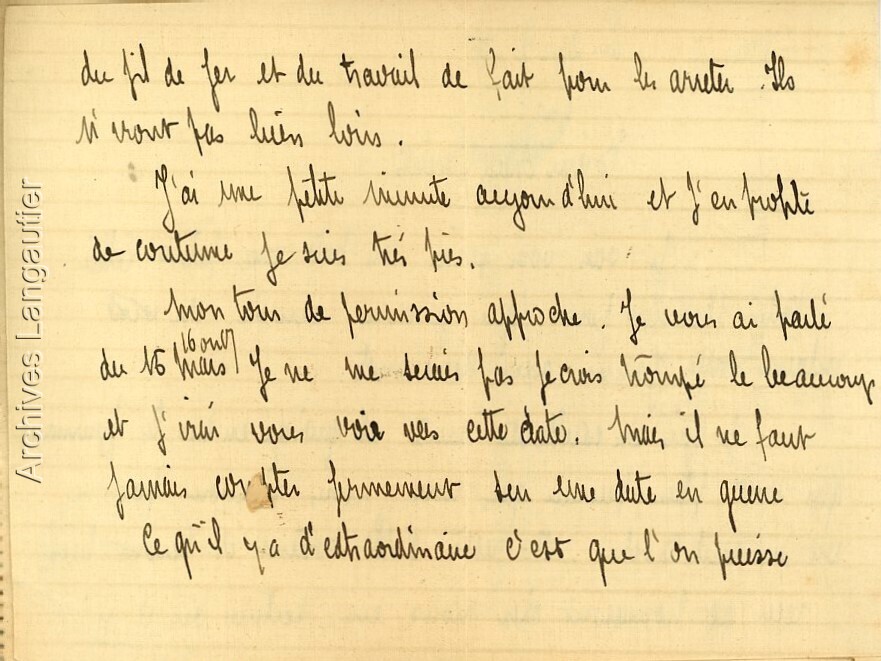 du fil de fer et du travail de fait pour les arreter. Ils
n'iront pas bien loin.
J'ai une petite minute aujourd'hui et j'en profite
de coutume je suis très pris.
Mon tour de permission approche. Je vous ai parlé
16 ou 17
du 15 Mars Je ne me serais pas je crois trompé de beaucoup
et j'irai vous voir vers cette date. Mais il ne faut
jamais compter fermement sur une date en guerre
Ce qu'il y a d'extraordinaire c'est que l'on puisse
Archives Langautier